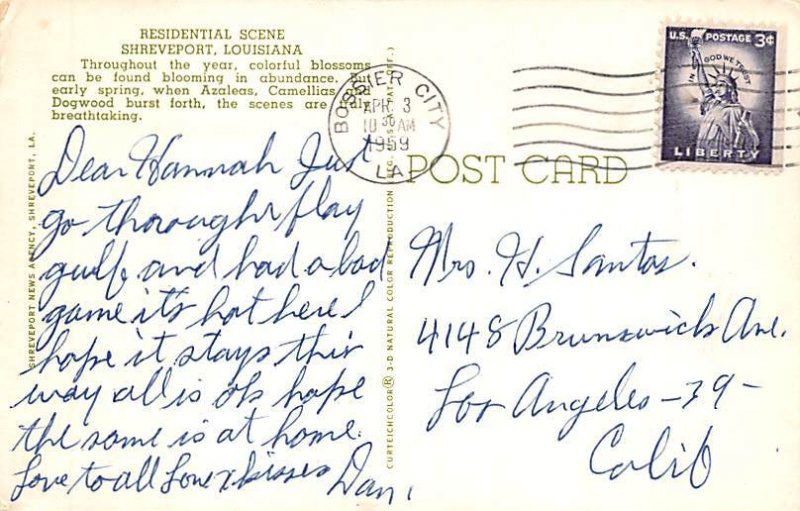 RESIDENTIAL SCENE
SHREVEPORT, LOUISIANA
Throughout the year, colorful blossoms
can be found blooming in abundance. But
early spring, when Azaleas, Camellias and
Dogwood burst forth, the scenes are truly
breathtaking.
Dear Hannah Just
go thorough flay
gulf, and had a bad
game it's hot here I
hope it stays this
way all is ok hope
the same is at home.
Love to all Love x kisses
Dan,
SHREVEPORT NEWS AGENCY, SHREVEPORT, LA.
CURTEICHCOLOR® 3-D NATURAL COLOR REPRODUCTION
BOSSIER CITY
APR 3
10 30 AM
1959
LA
U.S. POSTAGE 3¢
IN GOD WE TRUST
LIBERTY
POST CARD
Mrs. H. Santos.
4148 Brunswick Ave.
Los Angeles - 39 -
Calif